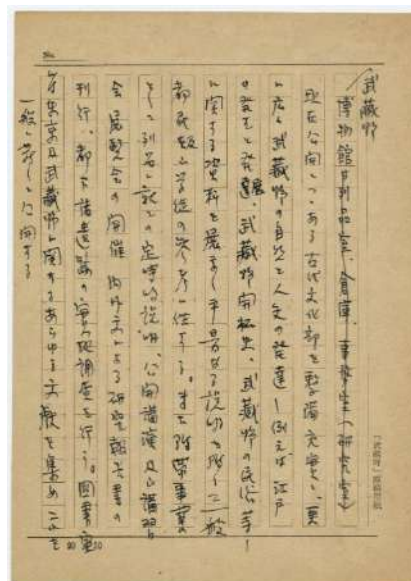 武蔵野
博物館は列品室、倉庫、事務室(研究室)
現在公開しつゝある古代文化部を整備充実し、更
に広く武蔵野の自然と人文の発達―例えば、江戸
の発生と発達、武蔵野開拓史、武蔵野の民俗等―
に関する資料を展示し平易なる説明を附し、一般
都民並に学徒の参考に供する。また附帯事業
として列品に就ての定時的説明、公開講演及び講習
会展覧会の開催、内外文による研究報告書の
刊行、都下諸遺跡の実地調査を行う。図書室
は東京及武蔵野に関するあらゆる文献を集め、これを
一般の希望者に公開する
「武蔵野」原稿用紙